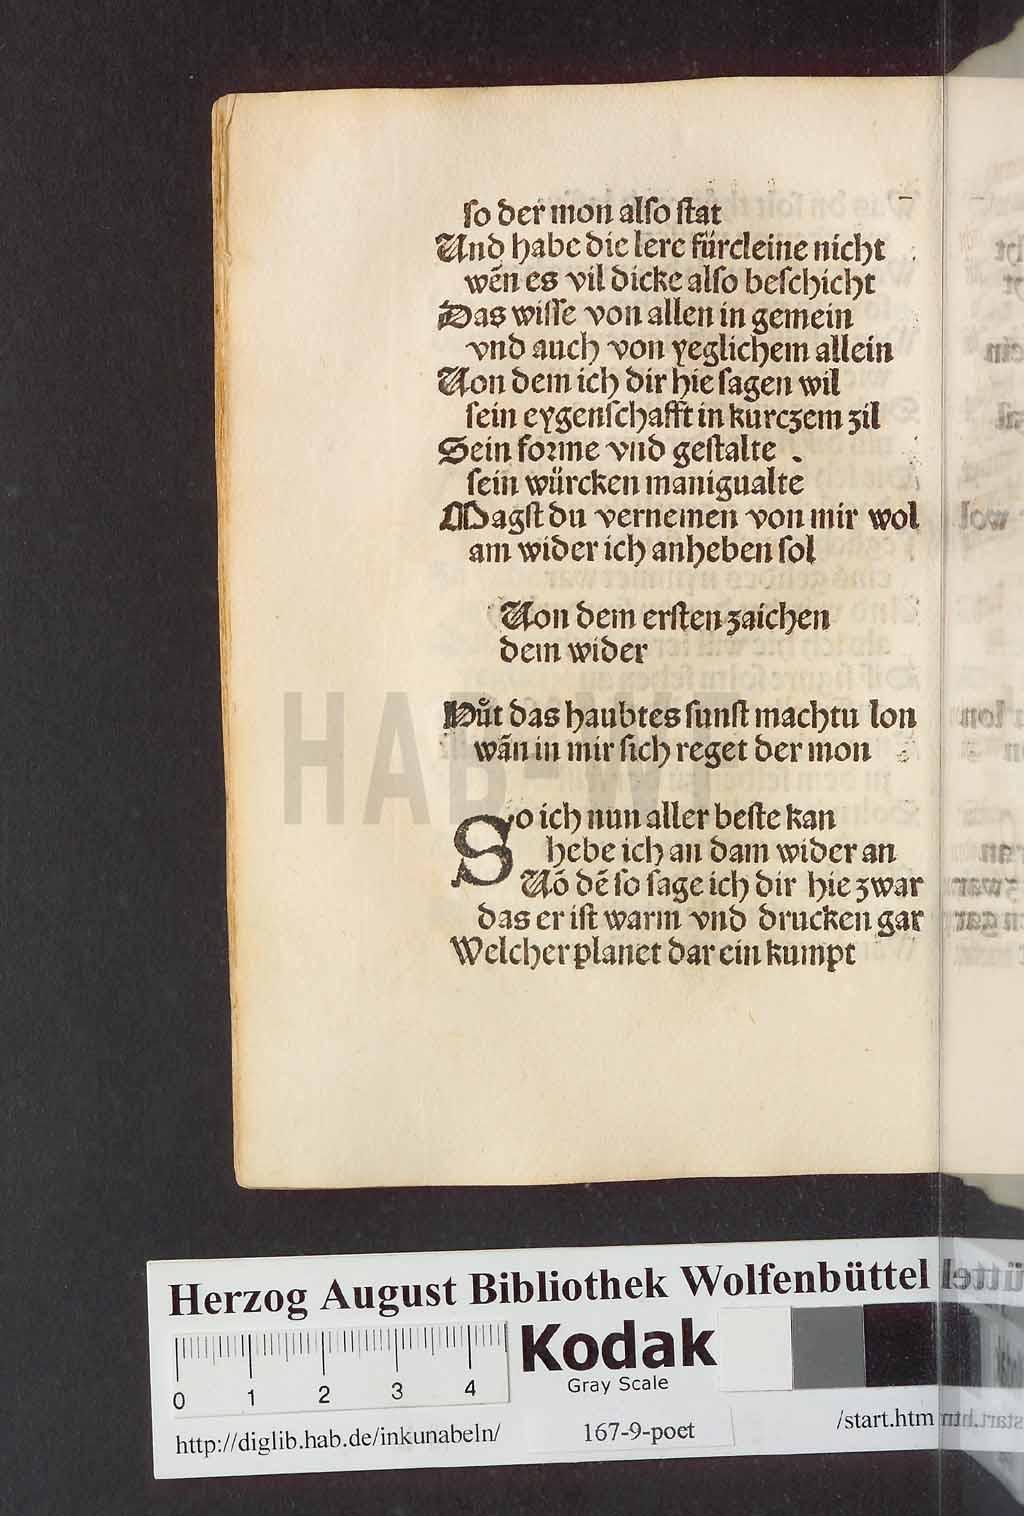 so der mon also stat
Und habe die lere fürcleine nicht
wen̄ es vil dicke also beschicht
Das wisse von allen in gemein
vnd auch von yeglichem allein
Von dem ich dir hie sagen wil
sein eygenschafft in kurczem zil
Sein forme vnd gestalte .
sein würcken manigualte
Magst du vernemen von mir wol
am wider ich anheben sol
Von dem ersten zaichen
dem wider
Hůt das haubtes sunst machtu lon
wan̄ in mir sich reget der mon
So ich nun aller beste kan
hebe ich an dam wider an
Vō dē so sage ich dir hie zwar
das er ist warm vnd drucken gar
Welcher planet dar ein kumpt
HAB-WF
Herzog August Bibliothek Wolfenbüttel
0 1 2 3 4
Kodak
Gray Scale
http://diglib.hab.de/inkunabeln/ 167-9-poet /start.htm